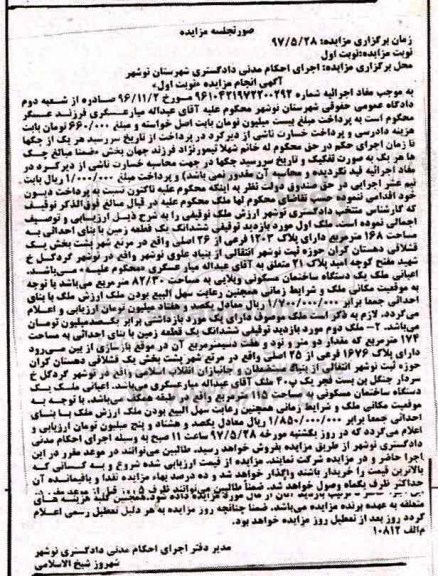 صورتجلسه مزایده
زمان برگزاری مزایده: ۹۷/۵/۲۸
نوبت مزایده:نوبت اول
محل برگزاری مزایده: اجرای احکام مدنی دادگستری شهرستان نوشهر
آگهی انجام مزایده «نوبت اول»
به موجب مفاد اجرائیه شماره ۹۶۱۰۴۲۱۹۷۲۲۰۰۲۹۲ مورخ ۹۶/۱۱/۲ صادره از شعبه دوم
دادگاه عمومی حقوقی شهرستان نوشهر محکوم علیه آقای عبداله میارعسگری فرزند عسگر
محکوم است به پرداخت مبلغ بیست میلیون تومان بابت اصل خواسته و مبلغ ۶۶۰/۰۰۰ تومان بابت
هزینه دادرسی و پرداخت خسارت ناشی از دیرکرد در پرداخت از تاریخ سررسید هر یک از چکها
تا زمان اجرای حکم در حق محکوم له خانم شهلا تیمورنژاد فرزند جهان بخش «ضمنا مبالغ چک
ها هر یک به صورت تفکیک و تاریخ سررسید چکها در جهت محاسبه خسارت ناشی از دیرکرد در
مفاد اجرائیه قید نگردیده و محاسبه آن مقدور نمی باشد» و پرداخت مبلغ ۱/۰۰۰/۰۰۰ ریال بابت
نیم عشر اجرایی در حق صندوق دولت نظر به اینکه محکوم علیه تاکنون نسبت به پرداخت دیون
خود اقدامی ننموده حسب تقاضای محکوم لها ملک محکوم علیه در قبال مبالغ فوق الذکر توقیف
که کارشناس منتخب دادگستری نوشهر ارزش ملک توقیفی را به شرح ذیل ارزیابی و توصیف
اجمالی نموده است. ملک اول مورد بازدید توقیفی ششدانگ یک قطعه زمین با بنای احداثی به
مساحت ۱۶۸ مترمربع دارای پلاک ۱۲۰۳ فرعی از ۲۶ اصلی واقع در مرتع شهر پشت بخش یک
قشلاقی دهستان کران حوزه ثبت نوشهر انتقالی از بنیاد علوی نوشهر واقع در نوشهر کردکل خ
شهید مفتح کوچه امید پلاک ۲۱ متعلق به آقای عبداله میار عسگری «محکوم علیه» می‌باشد.
اعیانی ملک یک دستگاه ساختمان مسکونی ویلایی به مساحت ۸۲/۳۰ مترمربع می‌باشد با توجه
به موقعیت مکانی ملک و شرایط زمانی همچنین رعایت سهل البیع بودن ملک ارزش ملک با بنای
احداثی جمعا برابر ۱/۷۰۰/۰۰۰/۰۰۰ ریال معادل یکصد و هفتاد میلیون تومان ارزیابی و اعلام
می‌گردد. لازم به ذکر است ملک موصوف دارای یک مورد بازداشتی برابر یکصدمیلیون تومان
می‌باشد. ۲- ملک دوم مورد بازدید توقیفی ششدانگ یک قطعه زمین با بنای احداثی به مساحت
۱۷۴ مترمربع که مقدار دو متر و نود و هفت دسیمترمربع آن در موقع بازسازی از بین می‌رود
دارای پلاک ۱۶۷۶ فرعی از ۲۵ اصلی واقع در مرتع شهر پشت بخش یک قشلاقی دهستان کران
حوزه ثبت نوشهر انتقالی از بنیاد مستضعفان و جانبازان انقلاب اسلامی واقع در نوشهر کردکل خ
سردار جنگل بن بست فجر یک پ۴۰ ملک آقای عبداله میارعسگری می‌باشد. اعیانی ملک یک
دستگاه ساختمان مسکونی با مساحت ۱۱۵ مترمربع واقع در طبقه همکف می‌باشد. با توجه به
موقعیت مکانی ملک و شرایط زمانی همچنین رعایت سهل البیع بودن ملک ارزش ملک با بنای
احداثی جمعا برابر ۱/۸۵۰/۰۰۰/۰۰۰ ریال معادل یکصد و هشتاد و پنج میلیون تومان ارزیابی و
اعلام می‌گردد که در روز یکشنبه مورخه ۹۷/۵/۲۸ ساعت ۱۱ صبح به وسیله اجرای احکام مدنی
دادگستری نوشهر از طریق مزایده بفروش خواهد رسید. طالبین می‌توانند در موعد مقرر در این
اجرا حاضر و در مزایده شرکت نمایند. مزایده از قیمت ارزیابی شده شروع و به کسانی که
بالاترین قیمت را خریدار باشند واگذار خواهد شد و ده درصد بهاء مزایده نقدا و باقیمانده آن
حداکثر ظرف یکماه وصول خواهد شد. ضمنا طالبین می‌توانند ظرف ۵ روز قبل از موعد مقرر به
متعلقه به عهده برنده مزایده می‌باشد. ضمنا چنانچه روز مزایده به هر دلیل تعطیل رسمی اعلام
گردد روز بعد از تعطیل روز مزایده خواهد بود.
م‌الف ۱۰۸۱۲
مدیر دفتر اجرای احکام مدنی دادگستری نوشهر
شهروز شیخ الاسلامی